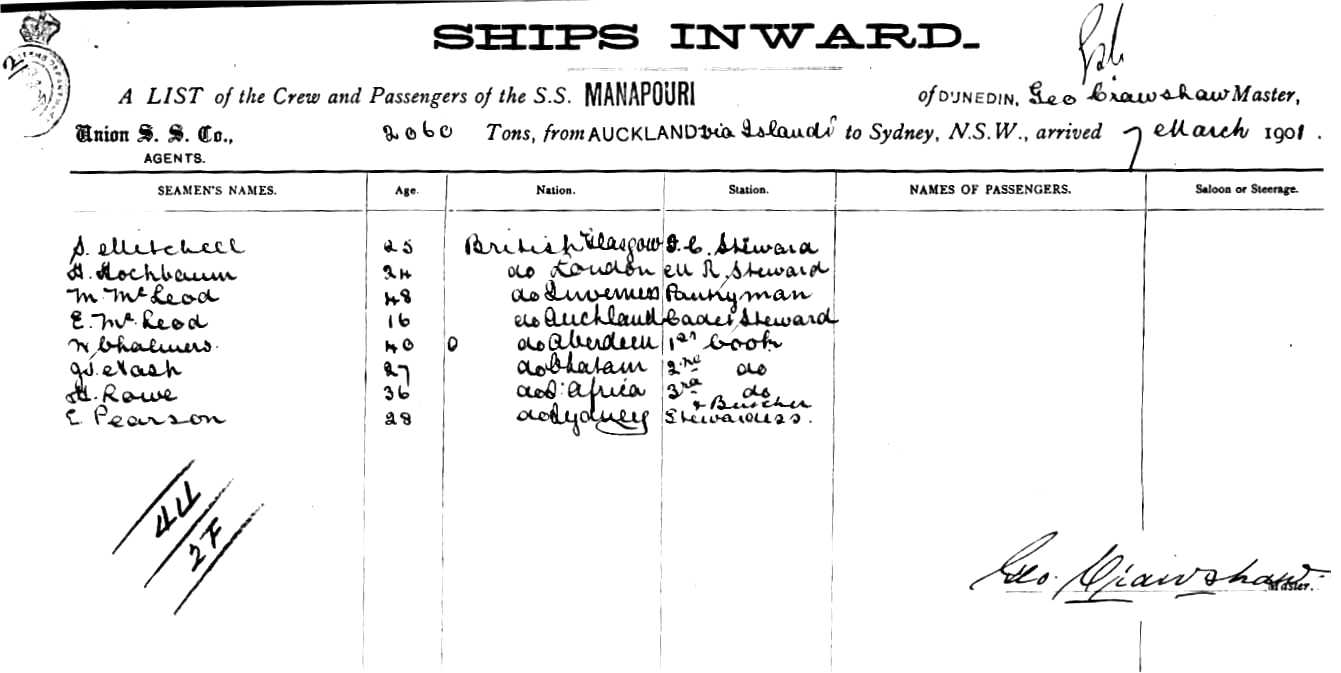 SHIPS INWARD.
A LIST of the Crew and Passengers of the S.S. MANAPOURI of DUNEDIN, Geo Crawshaw Master,
Union S. S. Co., 2060 Tons, from AUCKLAND via Islands to Sydney, N.S.W., arrived 7 March 1901.
AGENTS.
SEAMEN'S NAMES. Age. Nation. Station. NAMES OF PASSENGERS. Saloon or Steerage.
S. Mitchell 25 British Glasgow F.C. Steward
H. Hochbaum 24 do London M R Steward
M. McLeod 48 do Inverness Pantryman
E. McLeod 16 do Auckland Cadet Steward
W Chalmers 40 0 do Aberdeen 1st Cook
Nash 27 do Chatam 2nd do
H. Rowe 36 do S. Africa 3rd do
& Butcher
E Pearson 28 do Sydney Stewardess.
44
27
Geo. Crawshaw
Master.